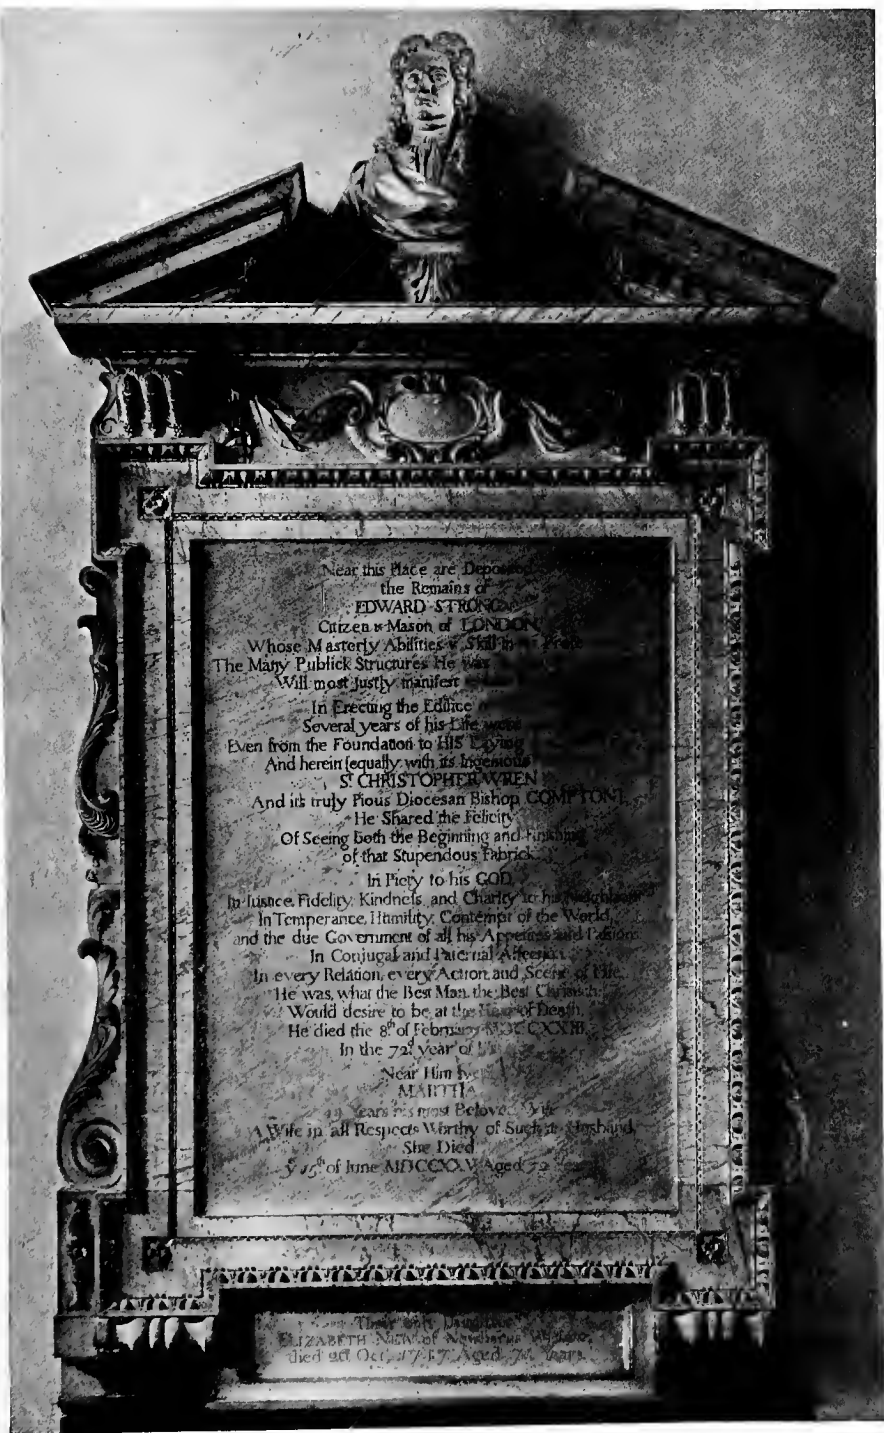 Near this Place are Deposited
the Remains of
EDWARD STRONG
Citizen & Mason of LONDON
Whose Masterly Abilities & Skill in
The Many Publick Structures He was
Will most Justly manifest
In Erecting the Edifice
Several years of his Life were
Even from the Foundation to HIS Laying
And herein equally with its Ingenious
Sr CHRISTOPHER WREN
And its truly Pious Diocesan Bishop COMPTON
He Shared the Felicity
Of Seeing both the Beginning and Finishing
of that Stupendous Fabrick
In Piety to his GOD,
In Justice, Fidelity, Kindness, and Charity to his Neighbour
In Temperance, Humility, Contempt of the World,
and the due Government of all his Appetites and Passions
In Conjugal and Paternal Affection
In every Relation, every Action, and Scene of Life,
He was, what the Best Man, the Best Christian
Would desire to be, at the Hour of Death.
He died the 8th of February MDCCXXIII,
In the 72d Year of
Near Him lyeth
MARTHA
Years his most Beloved Wife
A Wife in all Respects Worthy of Such a Husband,
She Died
ye 15th of June MDCCXXV Aged 72
Their only Daughter
ELIZABETH of
died Oct. Aged Years